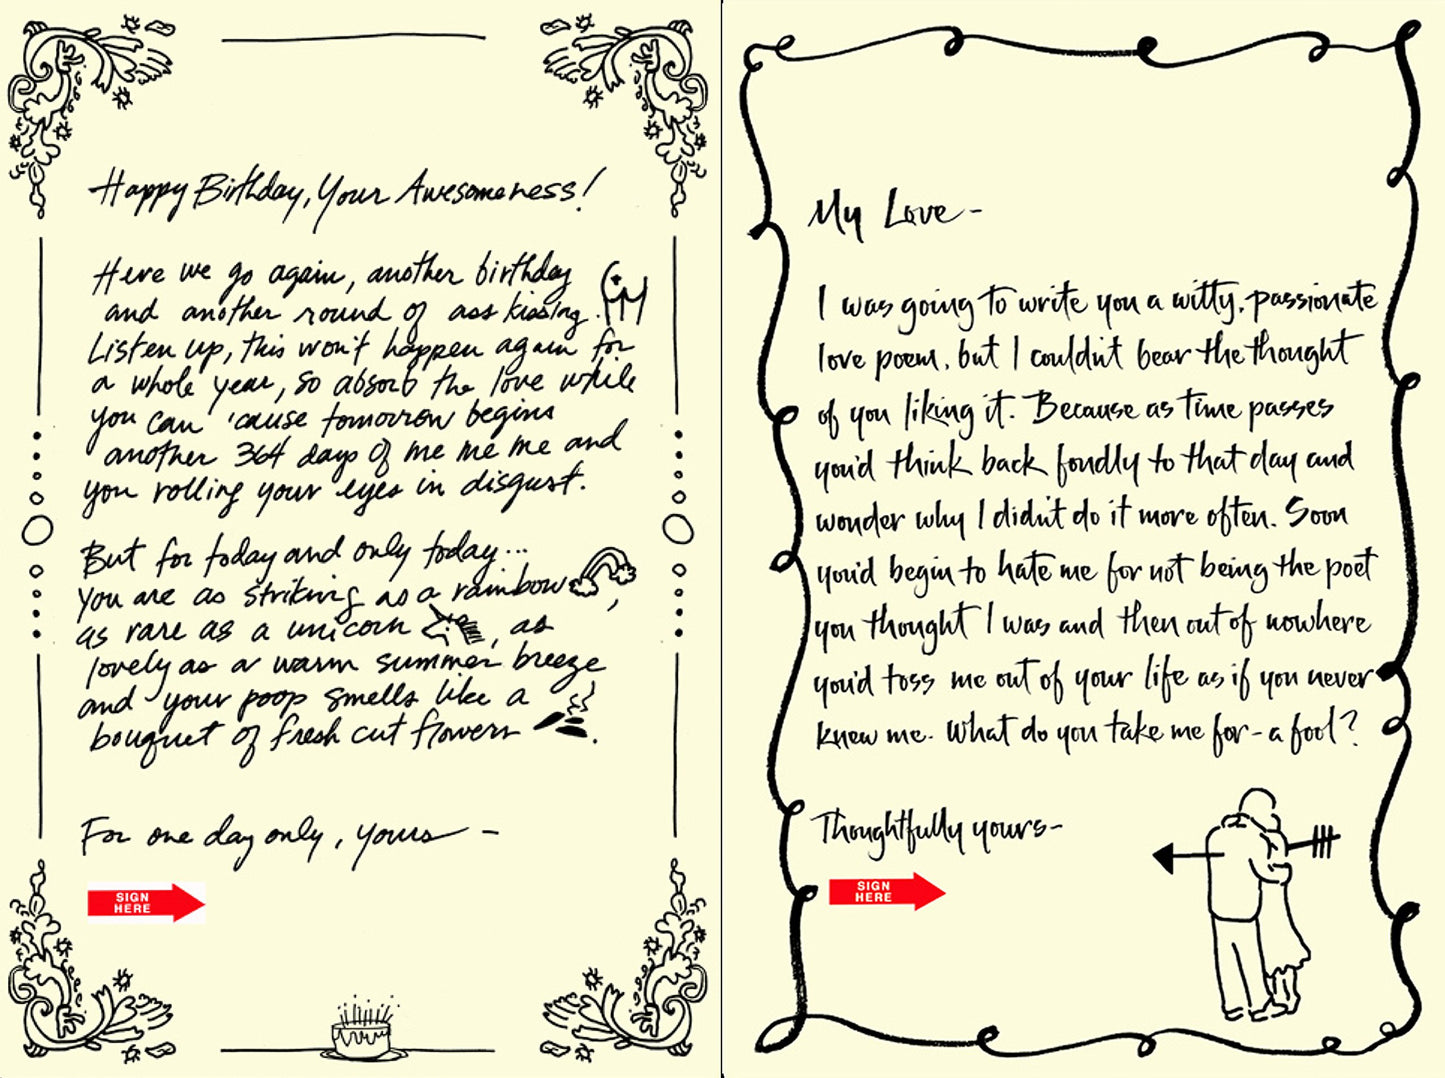 Happy Birthday, Your Awesomeness!
Here we go again, another birthday
and another round of ass kissing.
Listen up, this won't happen again for
a whole year, so absorb the love while
you can 'cause tomorrow begins
another 364 days of me me me and
you rolling your eyes in disgust.
But for today and only today...
you are as striking as a rainbow,
as rare as a unicorn, as
lovely as a warm summer breeze
and your poop smells like a
bouquet of fresh cut flowers.
For one day only, yours -
SIGN
HERE
My Love-
I was going to write you a witty, passionate
love poem, but I couldn't bear the thought
of you liking it. Because as time passes
you'd think back fondly to that day and
wonder why I didn't do it more often. Soon
you'd begin to hate me for not being the poet
you thought I was and then out of nowhere
you'd toss me out of your life as if you never
knew me. What do you take me for - a fool?
Thoughtfully yours-
SIGN
HERE